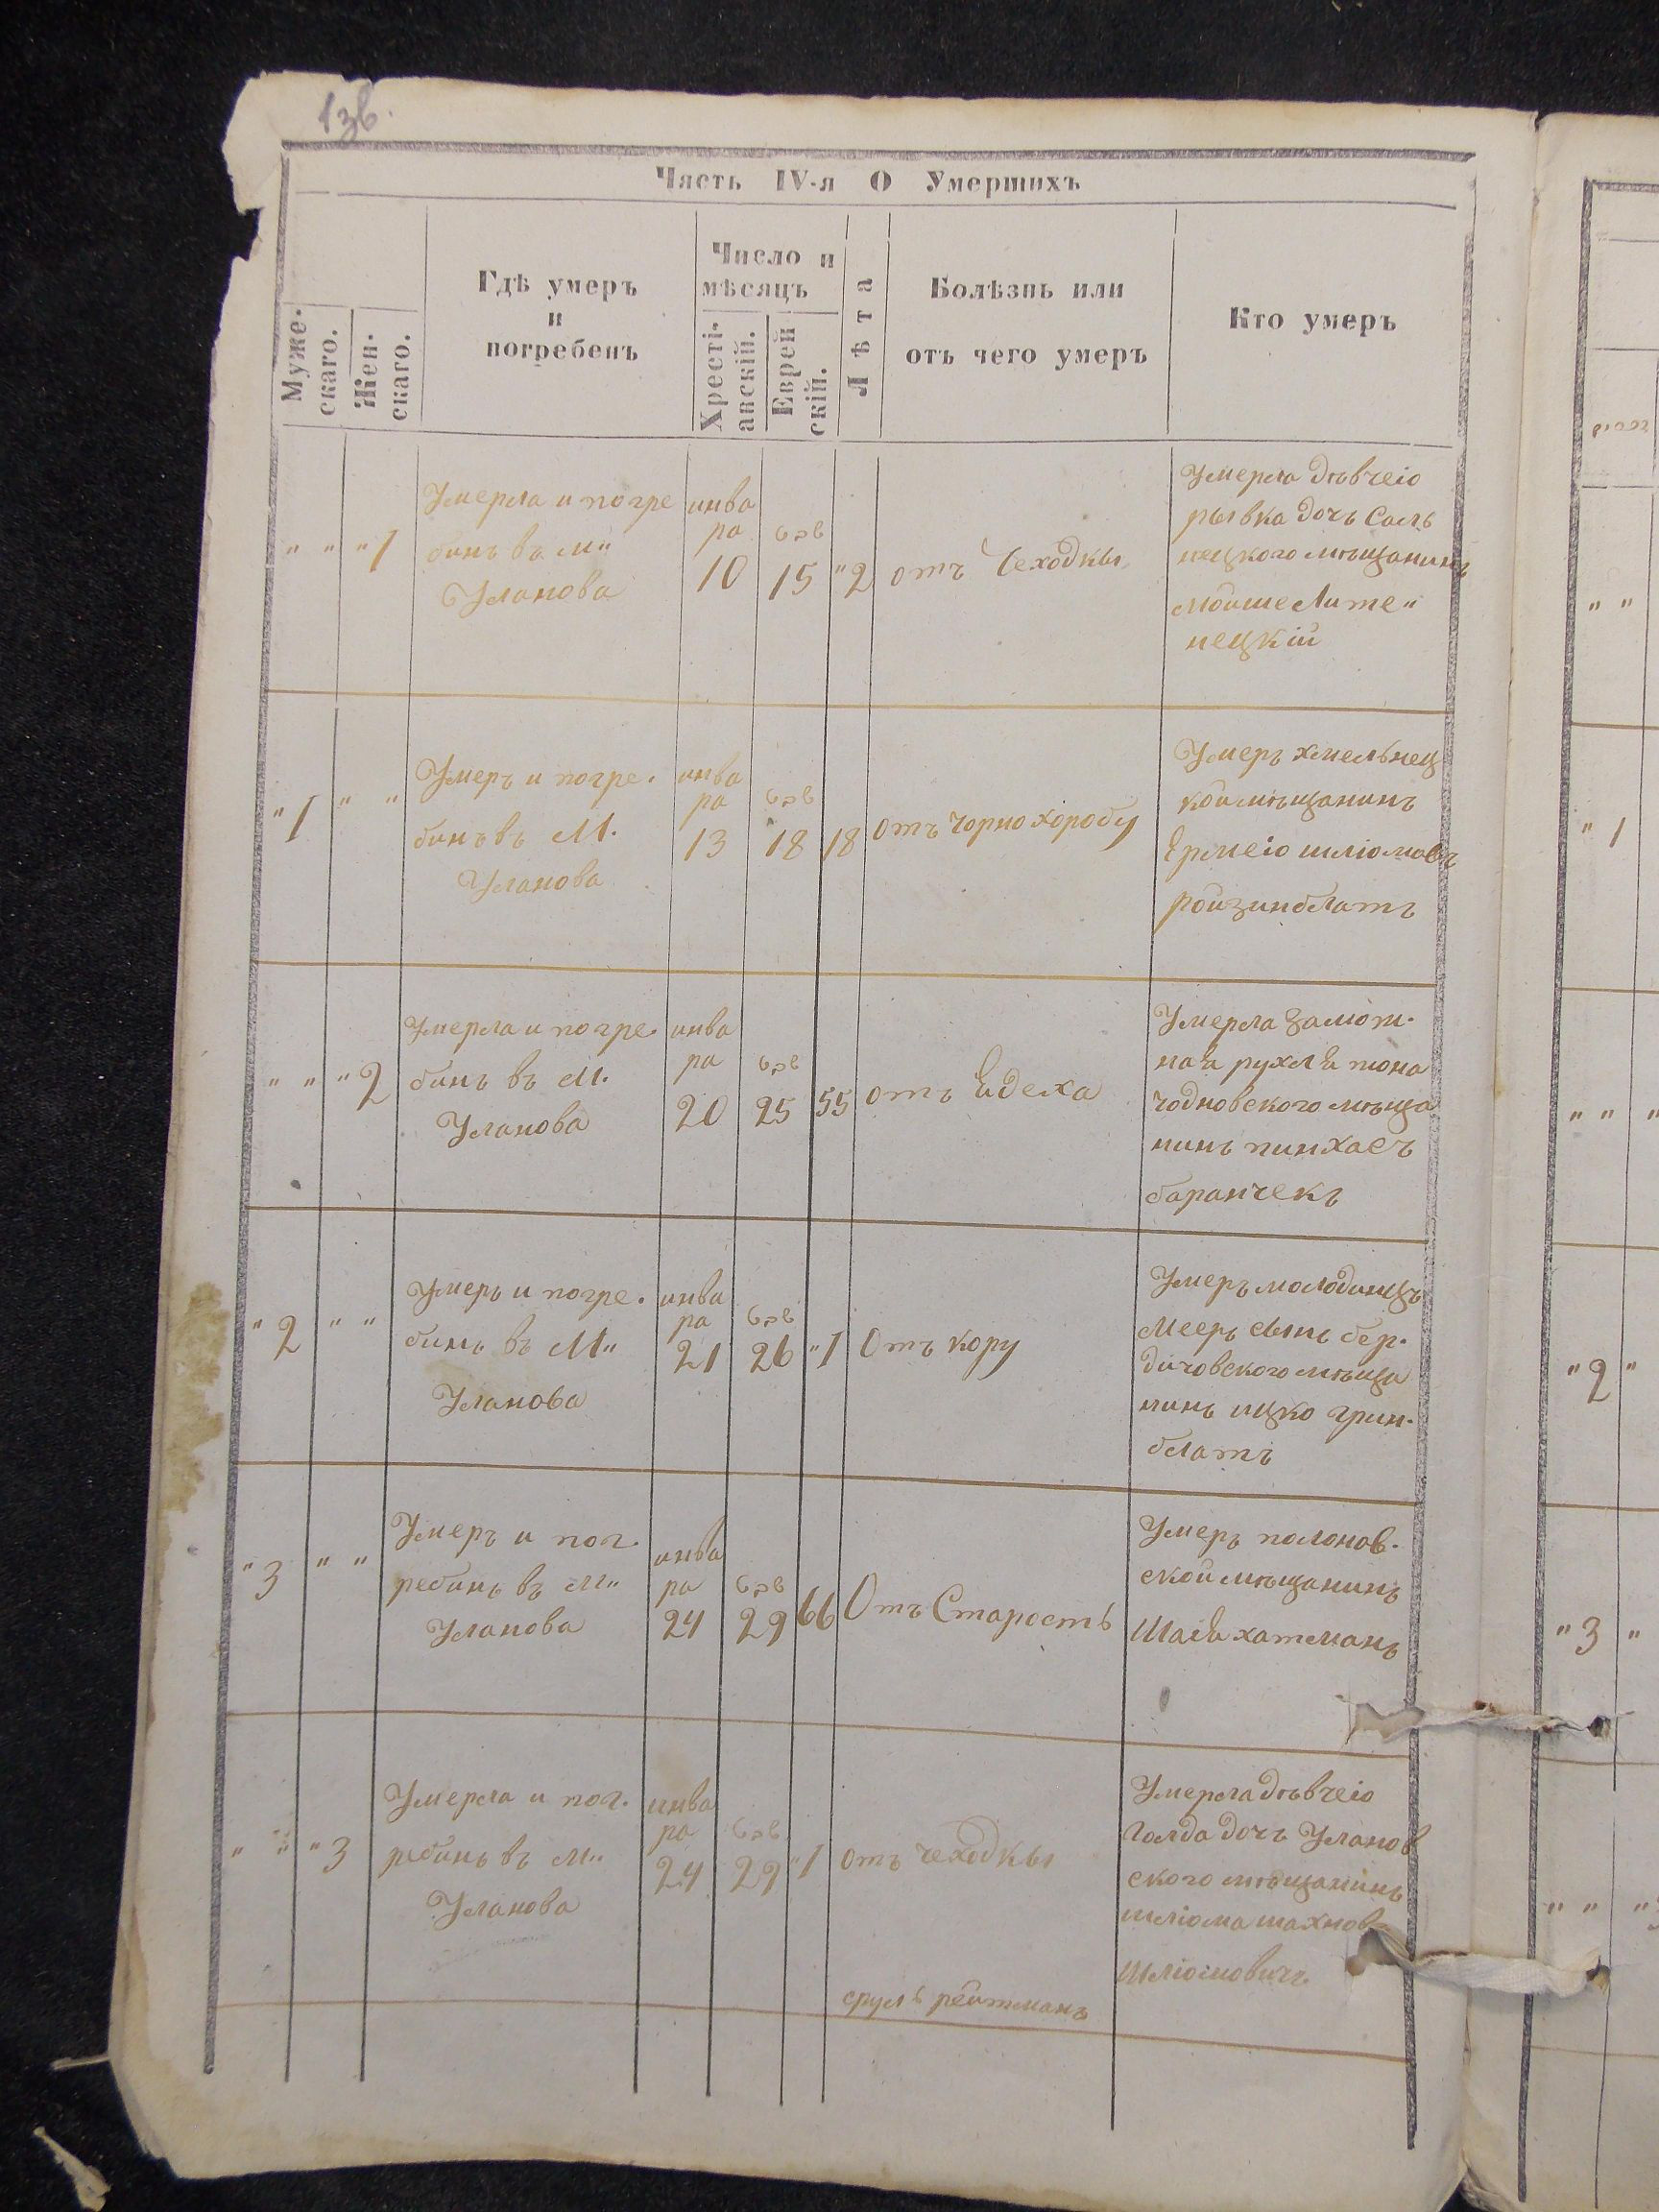 1зв.
Часть IV-я О Умершихъ
Муже-
скаго.
Жен-
скаго.
Гдѣ умеръ
и
погребенъ
Число и
мѣсяцъ
Хресті-
анскій.
Еврей
скій.
Лѣта
Болѣзнь или
отъ чего умеръ
Кто умеръ
" " " 1
Умерла и погре
бинъ въ м"
Уланова
инва
ра
10
15
"2
отъ Чеходкы
Умерла дѣвчеіо
рывка дочъ Саль
нецкого мѣщанинъ
мойше Лите"
нецкій
"1 " "
Умеръ и погре.
бинъ въ М.
Уланова
инва
ра
13
18
18
отъ чорно хоробу
Умеръ хмельнец
кой мѣщанинъ
Ермеіо шліомовъ
ройзинблатъ
" " " 2
Умерла и погре.
бинъ въ М.
Уланова
инва
ра
20
25
55
Умерла замож.
ная рухля жона
чодновского мѣща
нинъ пинхасъ
баранчекъ
"2 " "
Умеръ и погре.
бинъ въ М"
Уланова
инва
ра
21
26
"1
Отъ кору
Умеръ молодинцъ
Мееръ сынъ бер.
дичовского мѣща
нинъ ицко грин.
блатъ
"3 " "
Умеръ и пог.
ребинъ въ М"
Уланова
инва
ра
24
29
66
Отъ Старость
Умеръ полонов.
ской мѣщанинъ
Шая хатманъ
" " " 3
Умерла и пог.
ребинъ въ М"
Уланова
инва
ра
24
29
"1
отъ чеходкы
Умерла дѣвчеіо
Голда дочъ Уланов
ского мѣщанинъ
шліома шахнов
Шліомовичъ
сруль рейтманъ
" "
" 1
" " "
"2 "
"3 "
" " "